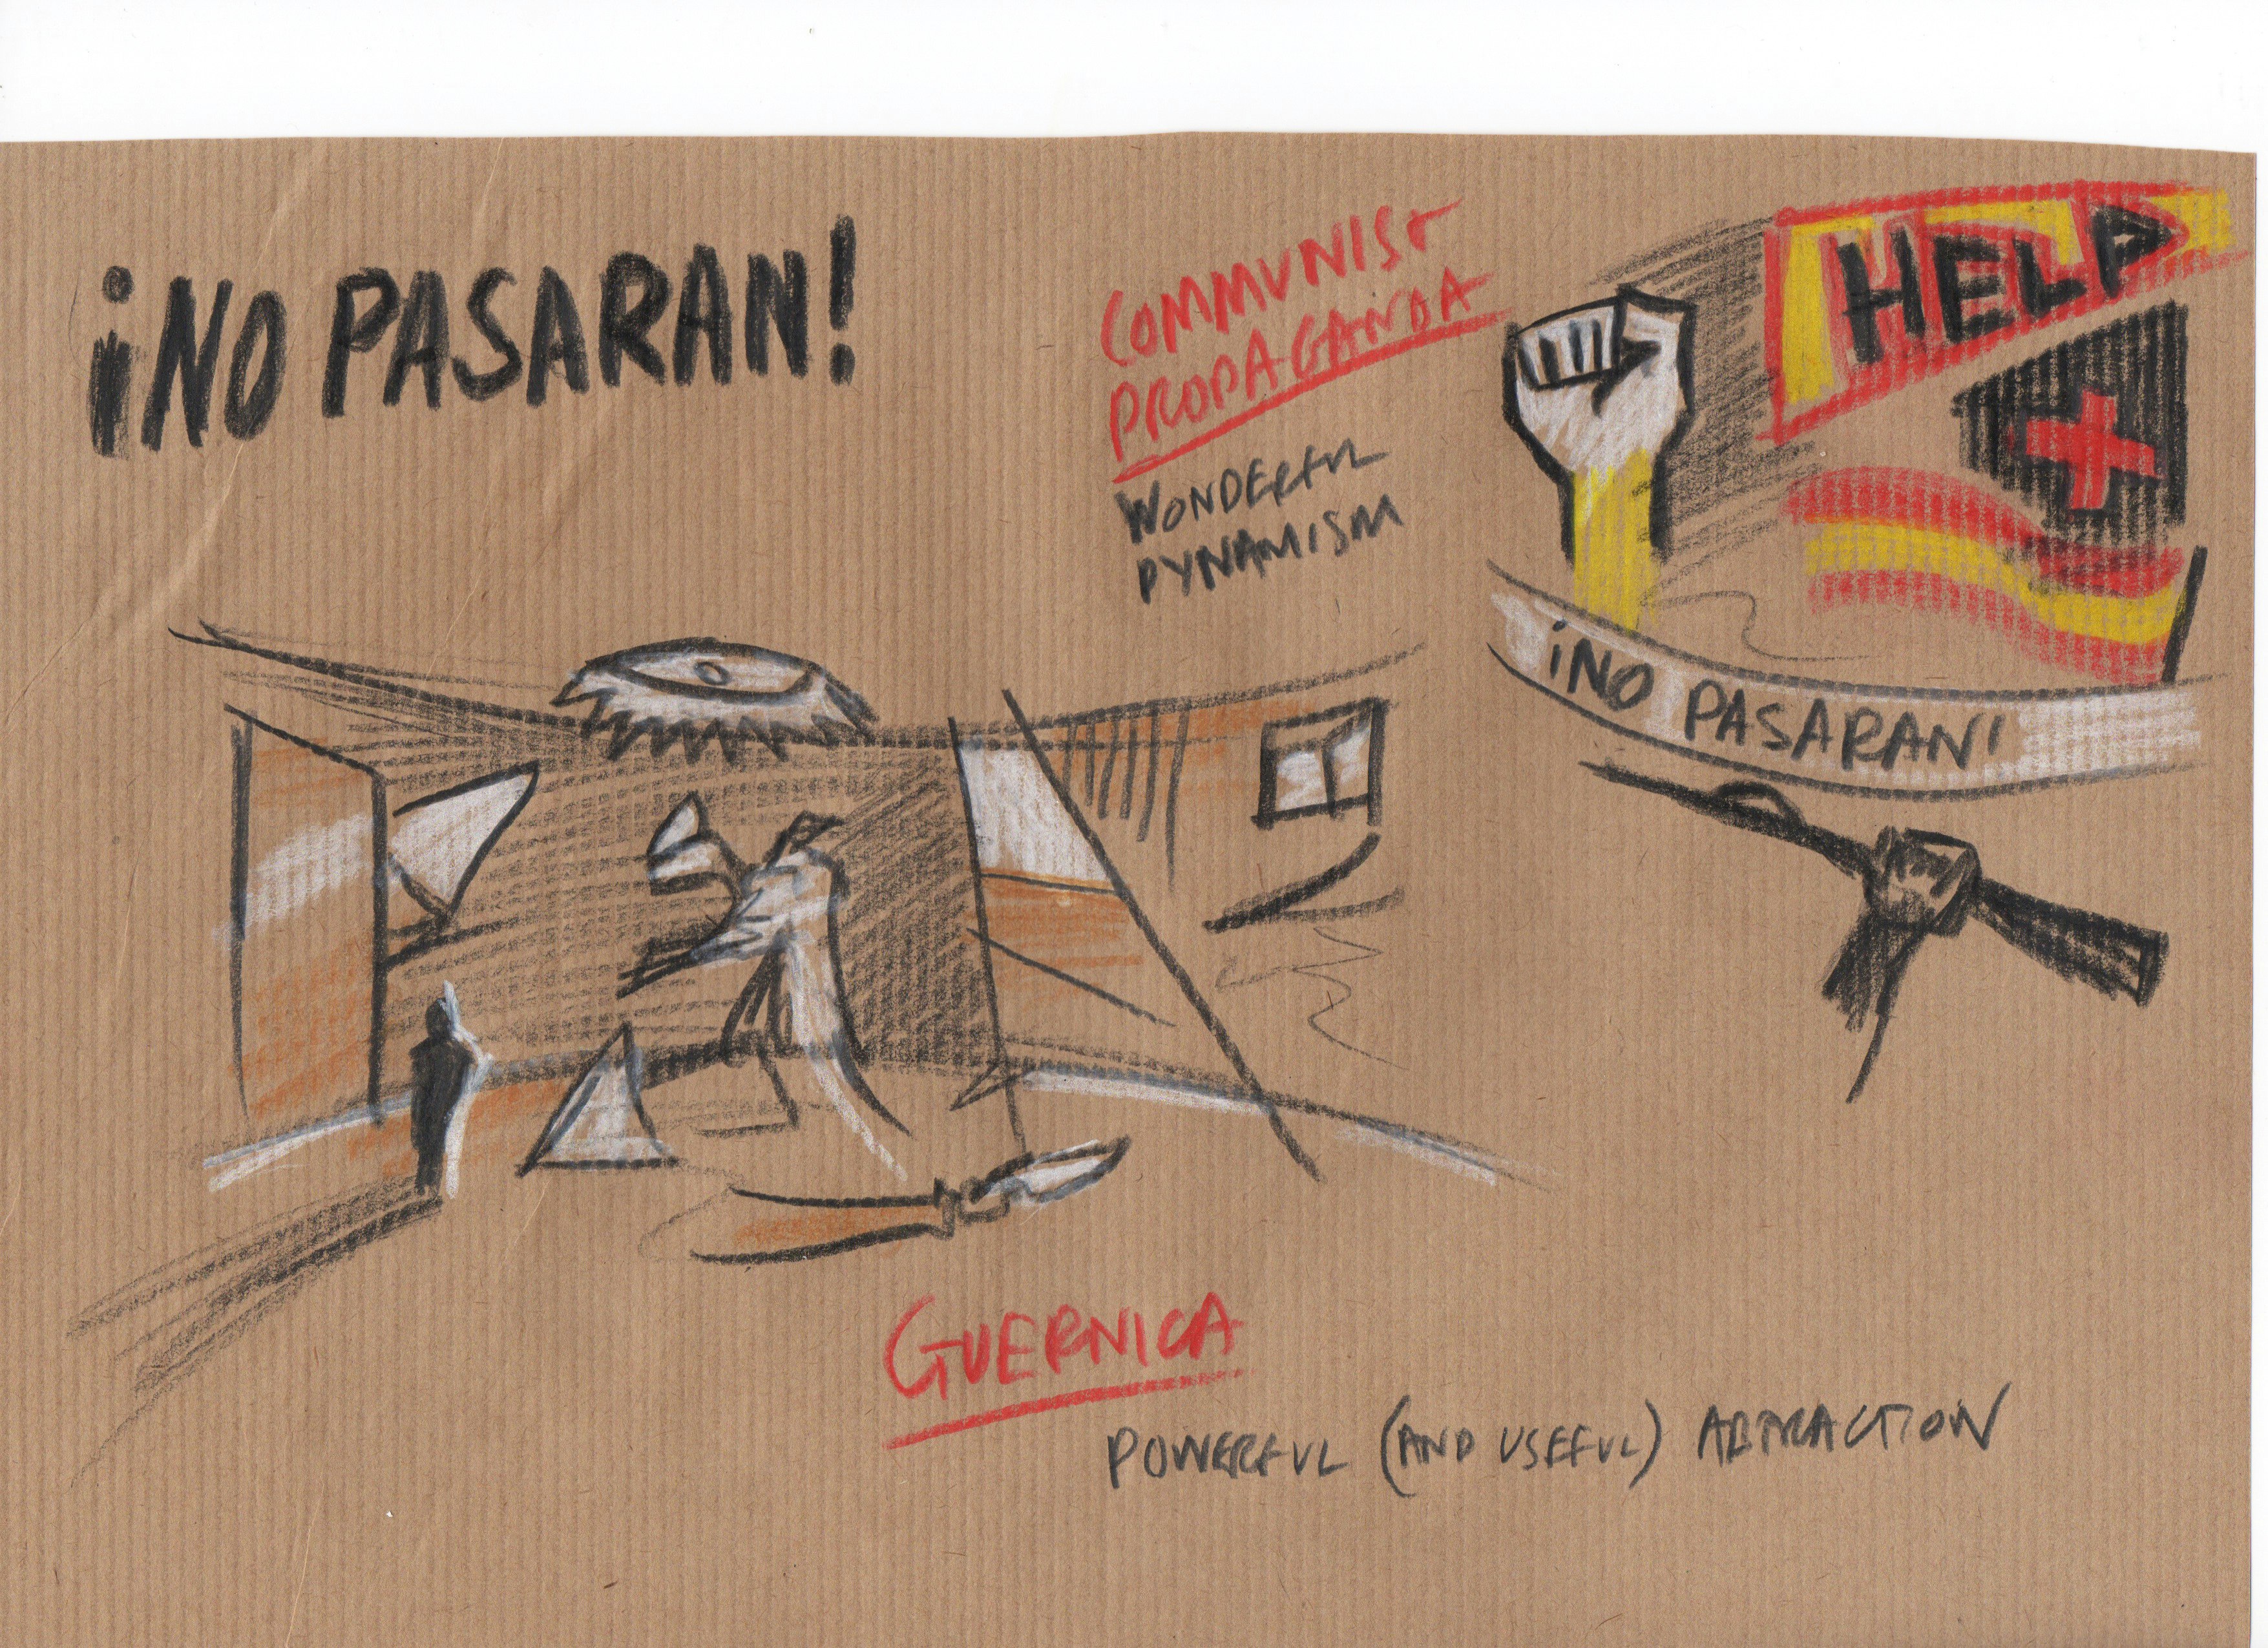 ¡NO PASARAN!
COMMUNIST
PROPAGANDA
WONDERFUL
DYNAMISM
HELP
¡NO PASARAN!
GUERNICA
POWERFUL (AND USEFUL) ABTRACTION